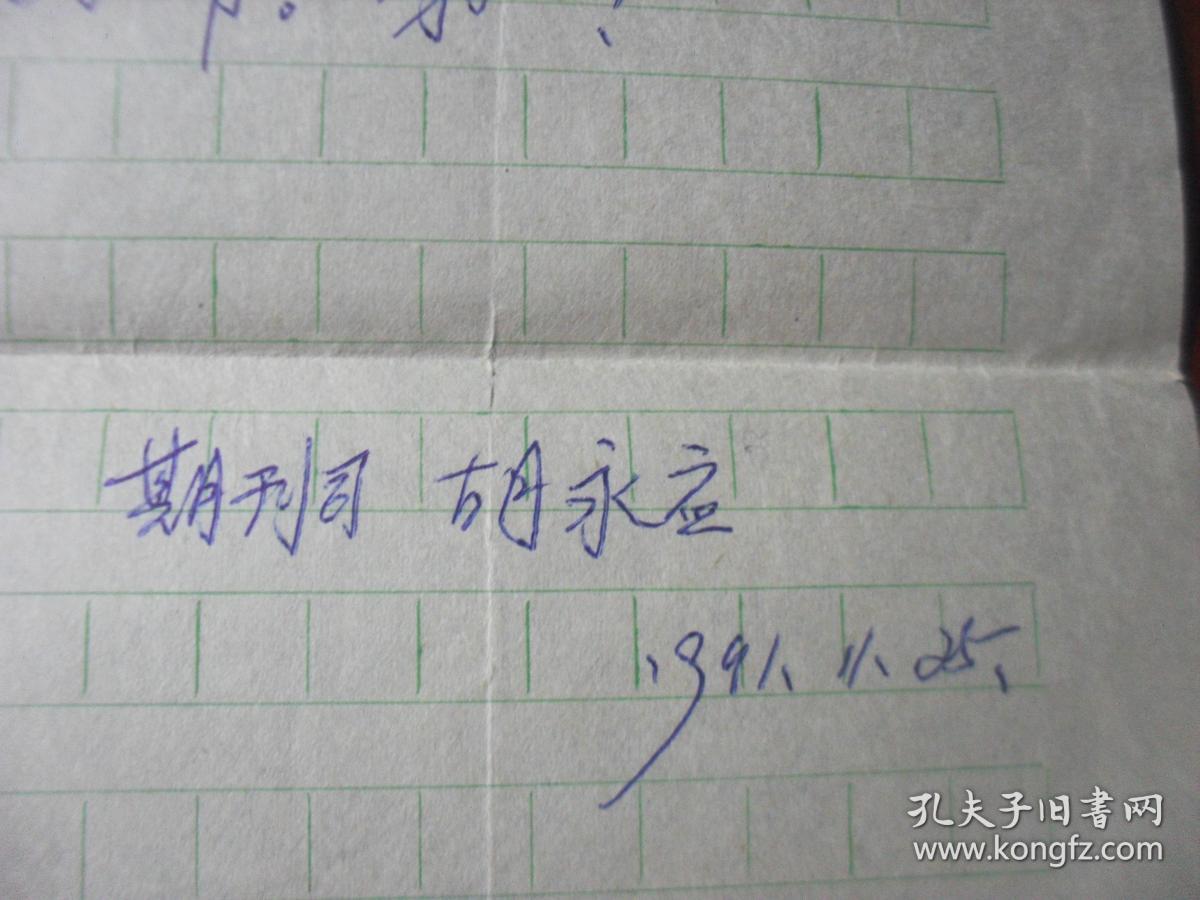 期刊司 胡永应
1991.11.25.
孔夫子旧書网
www.kongfz.com